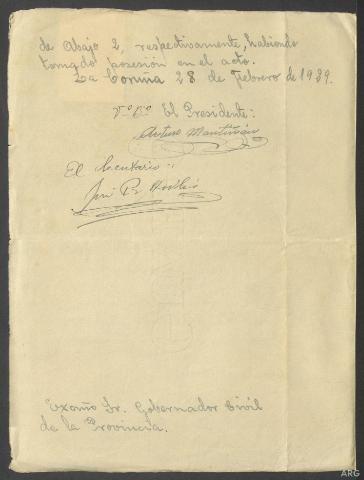 de Abajo 2, respectivamente, habiendo
tomado posesión en el acto.
La Coruña 28 de Febrero de 1939.
Vº Bº El Presidente:
Arturo Mantiñán
El Secretario:
José
Excmo Sr. Gobernador Civil
de la Provincia.
ARG